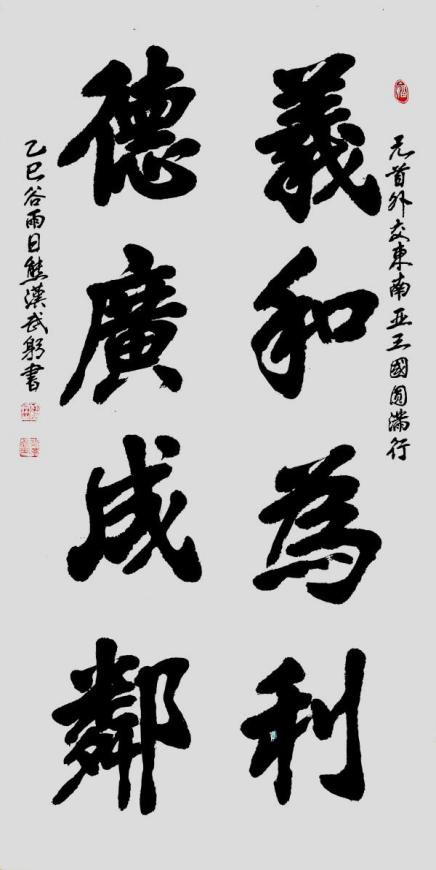 元首外交東南亚三國圆滿行
義和為利
德廣成鄰
乙巳谷雨日熊漢武躬書